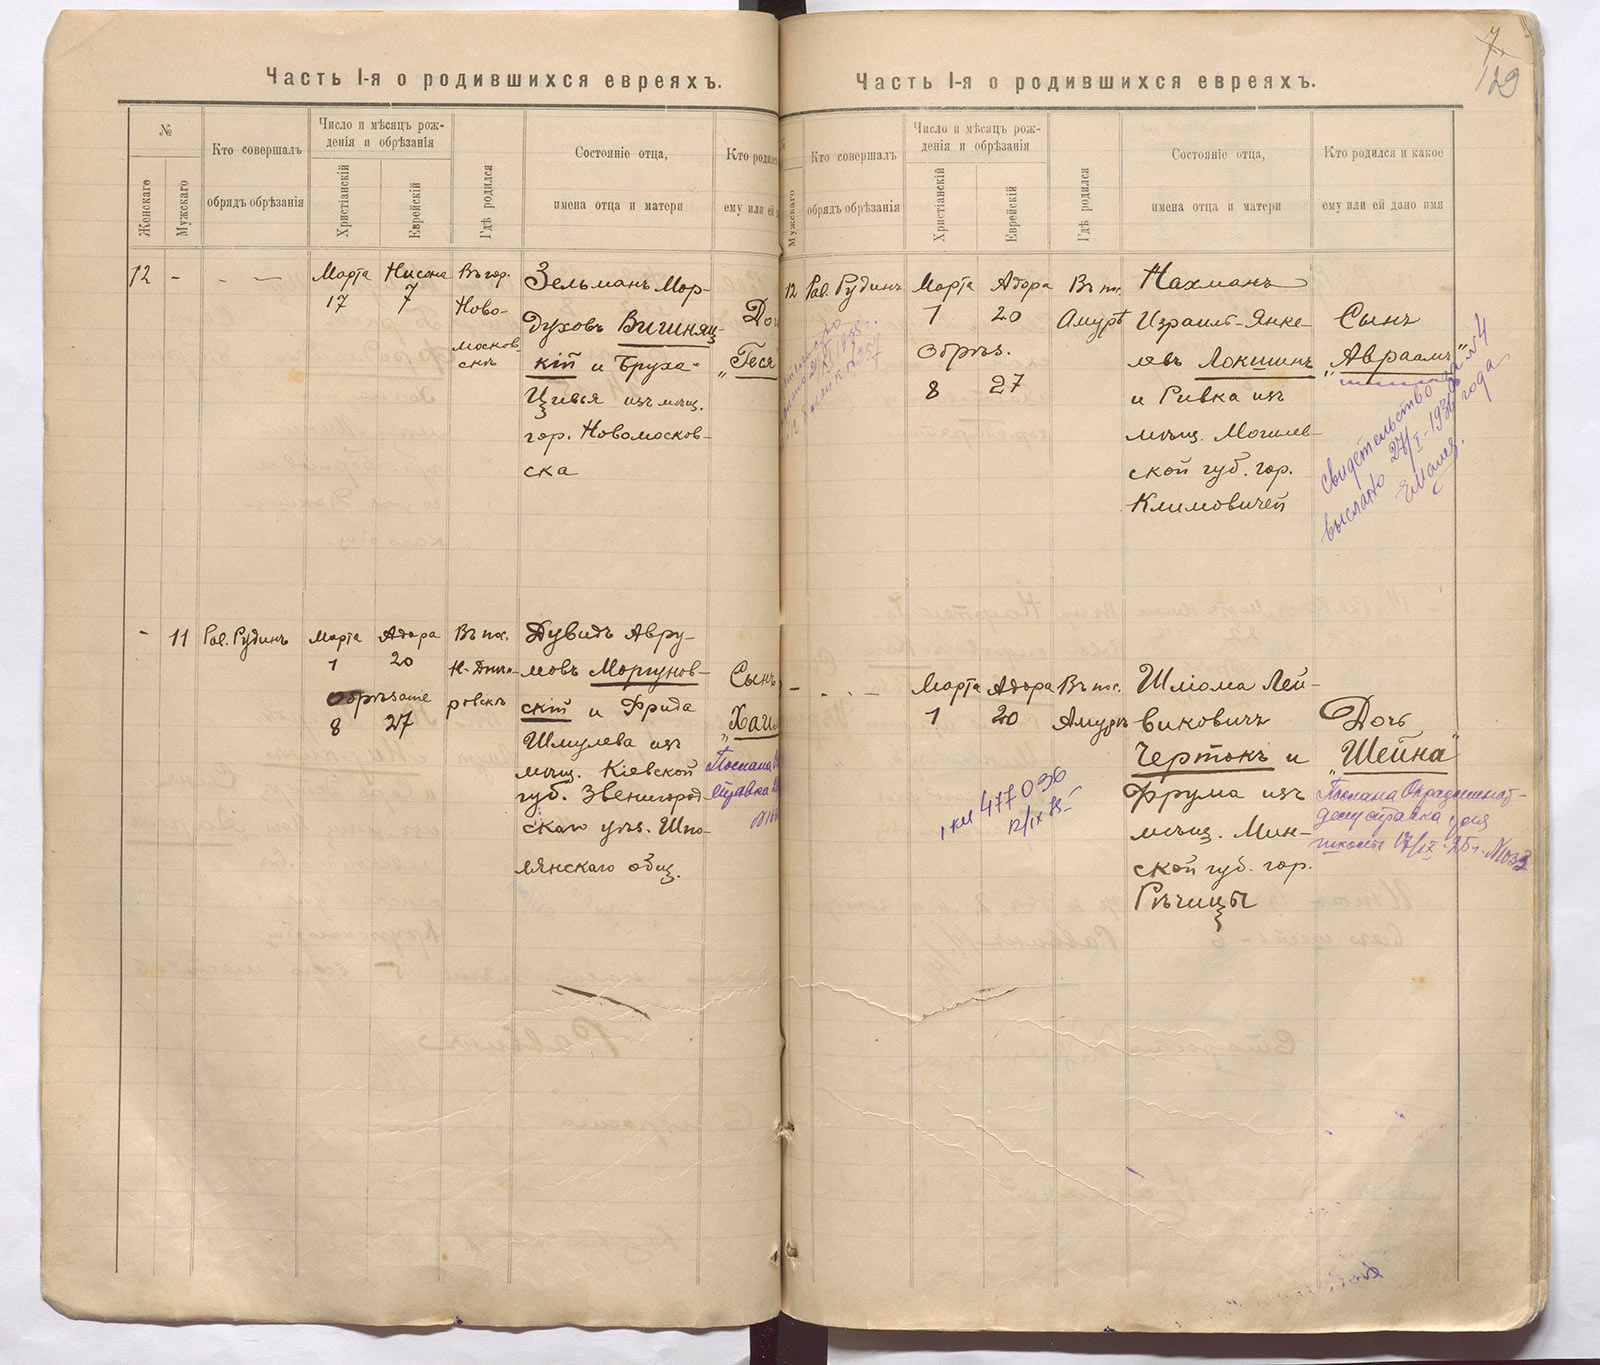 Часть I-я о родившихся евреяхъ.
№
Женскаго
Мужскаго
Кто совершалъ
обрядъ обрѣзанія
Число и мѣсяцъ рож-
денія и обрѣзанія
Христіанскій
Еврейскій
Гдѣ родился
Состояніе отца,
имена отца и матери
Кто родил
ему или ей
12 - -
Марта
17
Нисона
7
Въ гор.
Ново-
москов-
скъ
Зельманъ Мор-
духовъ Вишняц-
кій и Бруха-
Цивья изъ мѣщ.
гор. Новомосков-
ска
До
"Геся
- 11
Рав. Рудинъ
Марта
1
Обрѣзаніе
8
Адара
20
27
Въ пос.
Н-Днѣп-
ровскъ
Дувидъ Авру-
мовъ Моргунов-
скій и Фрида
Шмулева изъ
мѣщ. Кіевской
губ. Звенигород
скаго уѣз. Шпо-
лянскаго общ.
Сынъ
"Хаи
Послана
справка
Часть I-я о родившихся евреяхъ.
7
129
Мужскаго
Кто совершалъ
обрядъ обрѣзанія
Число и мѣсяцъ рож-
денія и обрѣзанія
Христіанскій
Еврейскій
Гдѣ родился
Состояніе отца,
имена отца и матери
Кто родился и какое
ему или ей дано имя
12
Рав. Рудинъ
Марта
1
Обрѣз.
8
Адара
20
27
Въ пос.
Амурѣ
Нахманъ
Израиль-Янке-
левъ Локшинъ
и Ривка изъ
мѣщ. Могилев-
ской губ. гор.
Климовичей
Сынъ
"Авраамъ"
Свидетельство за №4
выслано 27/I-1936 года
- . . -
Марта
1
Адара
20
Въ пос.
Амурѣ
Шліома Лей-
виковичъ
Чертокъ и
Фрума изъ
мѣщ. Мин-
ской губ. гор.
Рѣчицы
Дочь
"Шейна"
Послана
справка для
школы 17/IX 25 г. №033
477036
12/IX